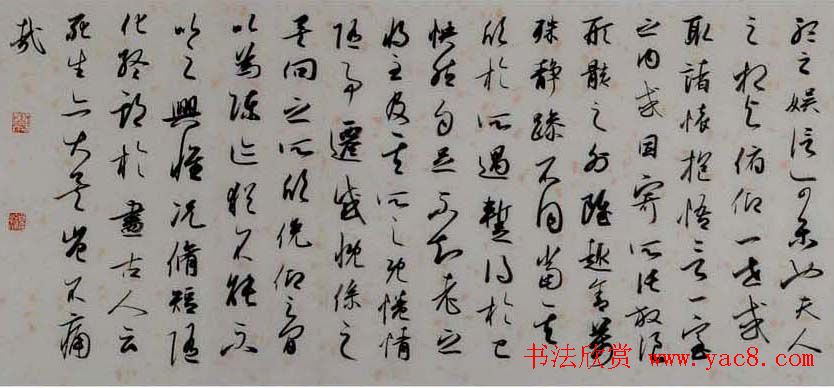 聽之娛信可樂也夫人
之相與俯仰一世或
取諸懷抱悟言一室
之內或因寄所託放浪
形骸之外雖趣舍萬
殊靜躁不同當其
欣於所遇暫得於己
快然自足不知老之
將至及其所之既惓情
隨事遷感慨係之
矣向之所欣俛仰之間
以為陳迹猶不能不
以之興懷況脩短隨
化終期於盡古人云
死生亦大矣豈不痛
哉
书法欣赏 www.yac8.com